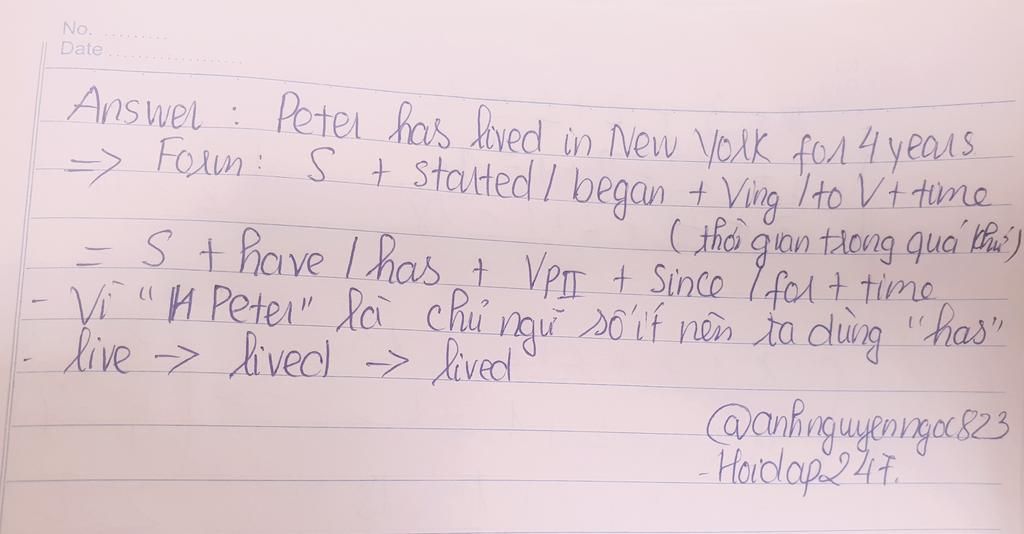 No. .........
Date ..................
Answer : Peter has lived in New York for 4 years
=> Form: S + started / began + Ving / to V + time
(thời gian trong quá khứ)
= S + have / has + VpII + since / for + time
- Vì "Peter" là chủ ngữ số ít nên ta dùng "has"
- live -> lived -> lived
@anhnguyenngoc823
- Hoidap247.